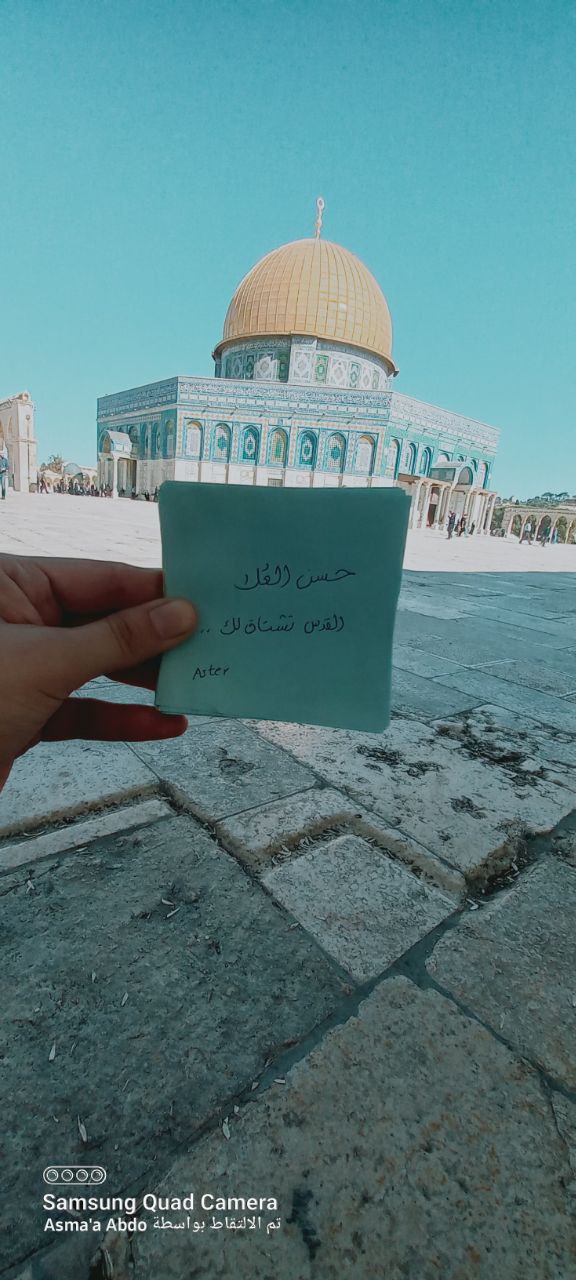 حسن العُلا
القدس تشتاق لك ..
Aster
Samsung Quad Camera
Asma'a Abdo تم الالتقاط بواسطة